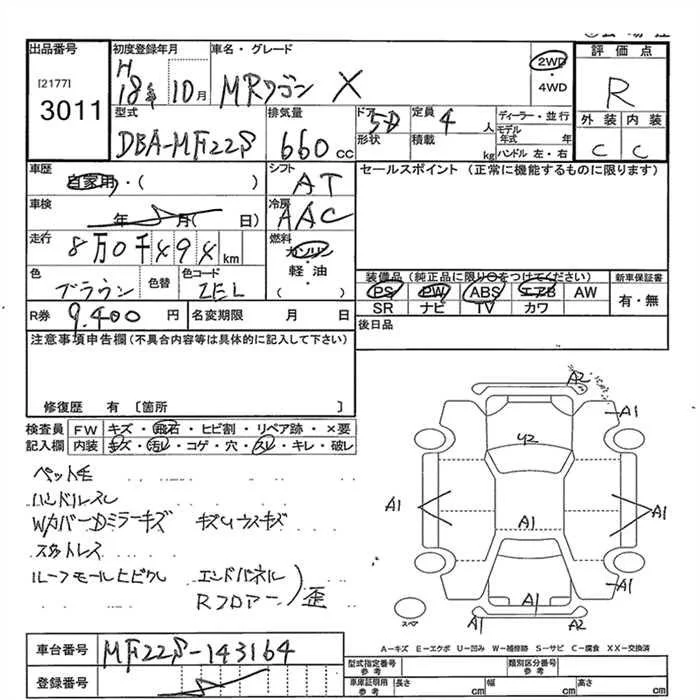 出品番号
[2177]
3011
初度登録年月
H
18年 10月
車名・グレード
MRワゴン X
2WD
・
4WD
評価点
R
外装 内装
C C
型式
DBA-MF22S
排気量
660 cc
ドア
5D
形状
定員
4 人
積載
kg
ディーラー・並行
モデル
年式 年
ハンドル 左・右
車歴
自家用・( )
シフト
AT
セールスポイント (正常に機能するものに限ります)
車検
年 月( 日)
冷房
AAC
走行
8万0千494 km
燃料
ガソリン
軽・油
( )
色
ブラウン
色替
色コード
ZEL
装備品 (純正品に限り○をつけてください)
新車保証書
PS PW ABS エアB AW
SR ナビ TV カワ
有・無
R券
9,400 円
名変期限 月 日
後日品
注意事項申告欄 (不具合内容等は具体的に記入して下さい)
修復歴 有 〔箇所 〕
検査員
記入欄
FW キズ・飛石・ヒビ割・リペア跡・×要
内装 キズ・汚レ・コゲ・穴・スレ・キレ・破レ
ペット毛
ハンドルスレ
Wカバー Dミラーキズ キズUウスキズ
スタットレス
ルーフモールヒビワレ エンドパネル
Rフロアー
歪
A2
A1
U2
A1
A1
A1
A1
A1
A1
A2
スペア
A－キズ E－エクボ U－凹み W－補修跡 S－サビ C－腐食 XX－交換済
車台番号
MF22S-143164
登録番号
型式指定番号
参考
類別区分番号
参考
車庫証明用
参考
長さ cm
幅 cm
高さ cm